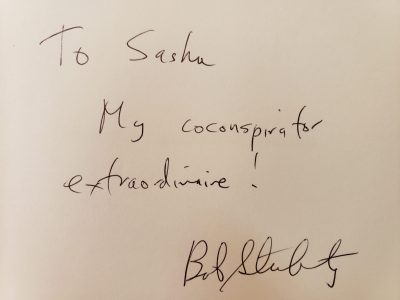 To Sasha
My coconspirator
extraordinaire!
Bob